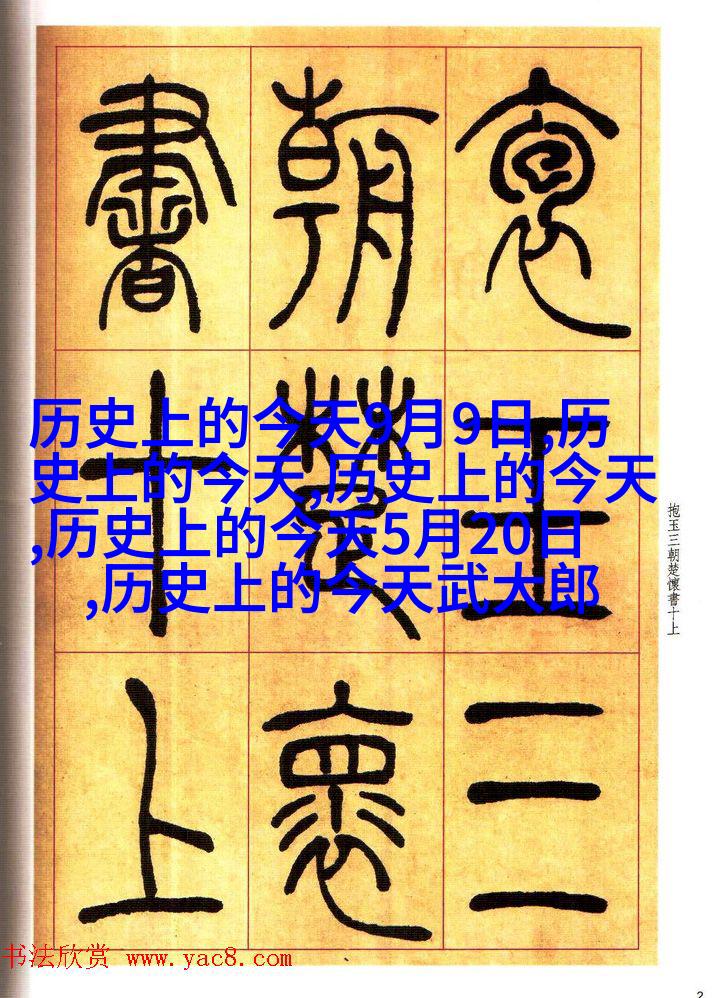 袌玉三
朝楚褱
書十上
历史上的今天9月9日,历
史上的今天,历史上的今天
,历史上的今天5月20日
,历史上的今天武大郎
抱玉三朝楚懷書十上
书法欣赏 www.yac8.com
2